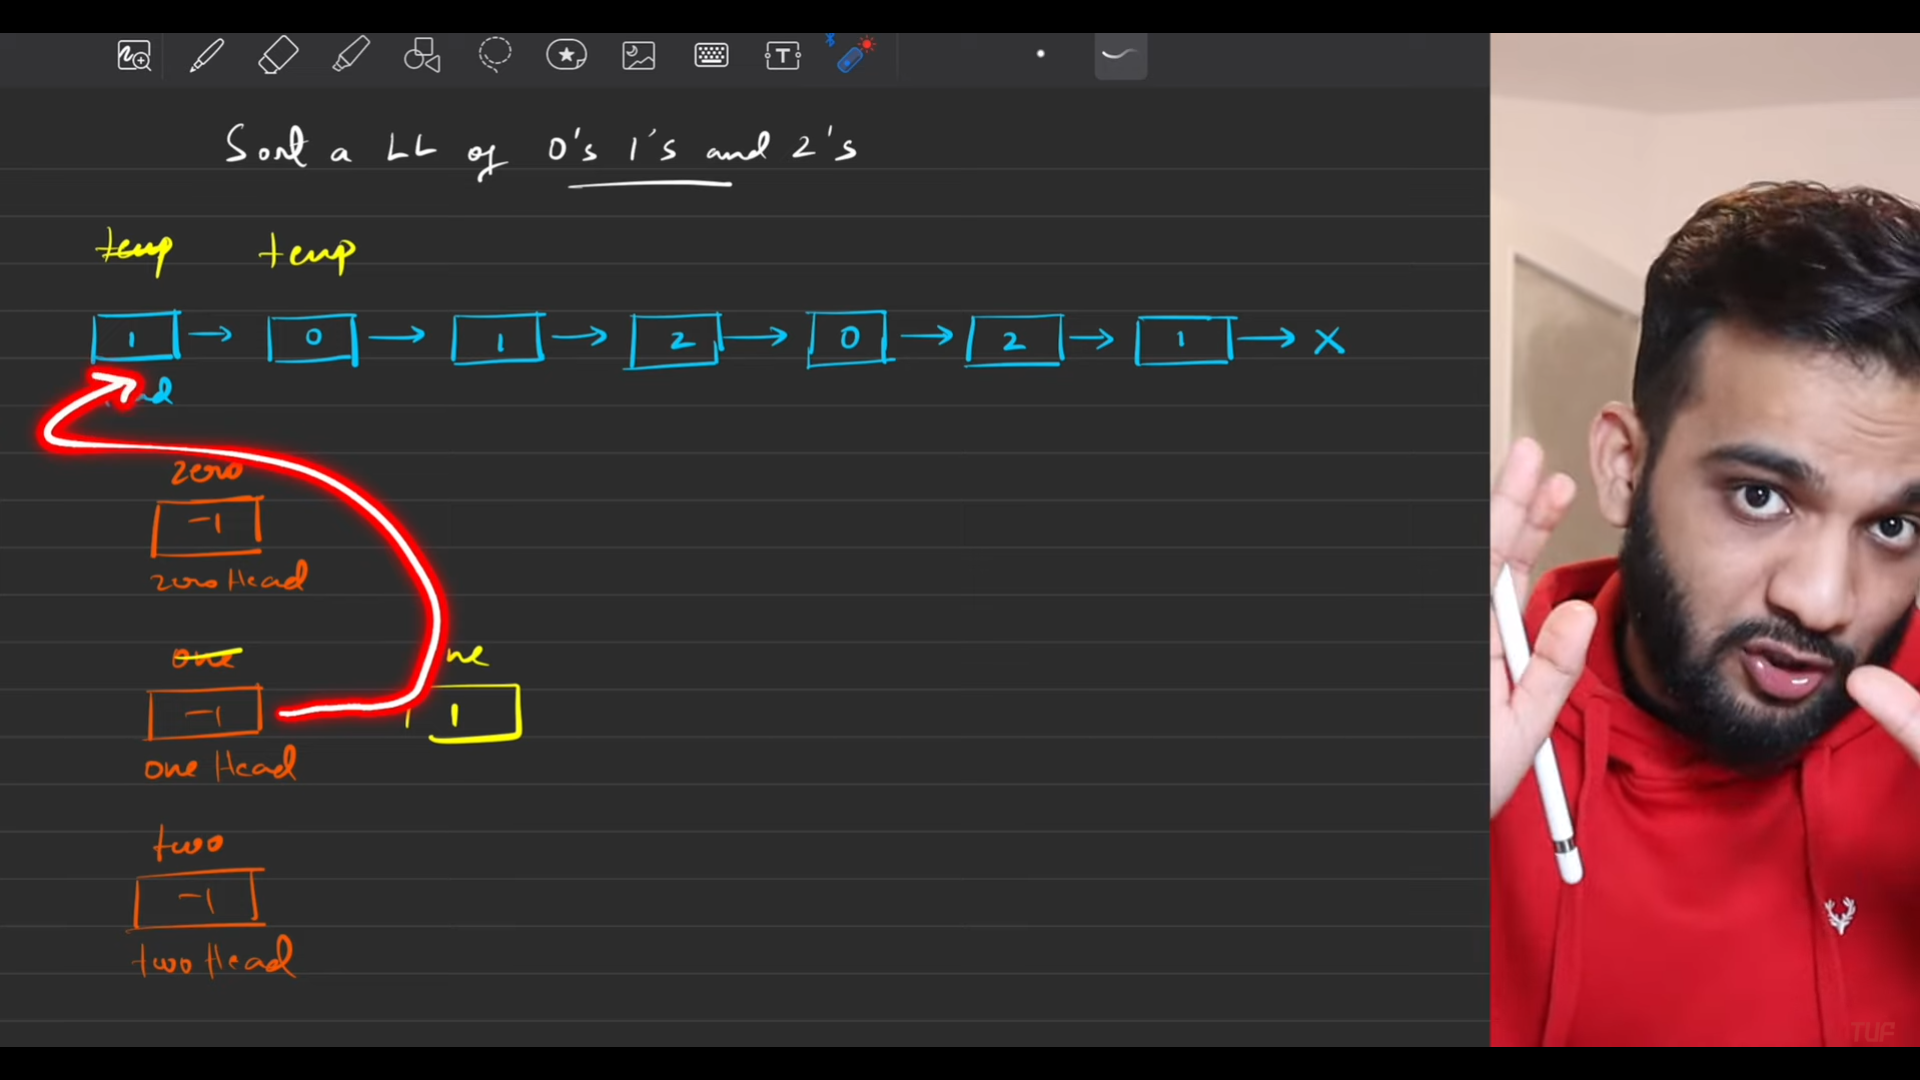 Sort a LL of 0's 1's and 2's
temp temp
1 → 0 → 1 → 2 → 0 → 2 → 1 → X
zero
-1
zero Head
one ne
-1 1
one Head
two
-1
two Head
TUF